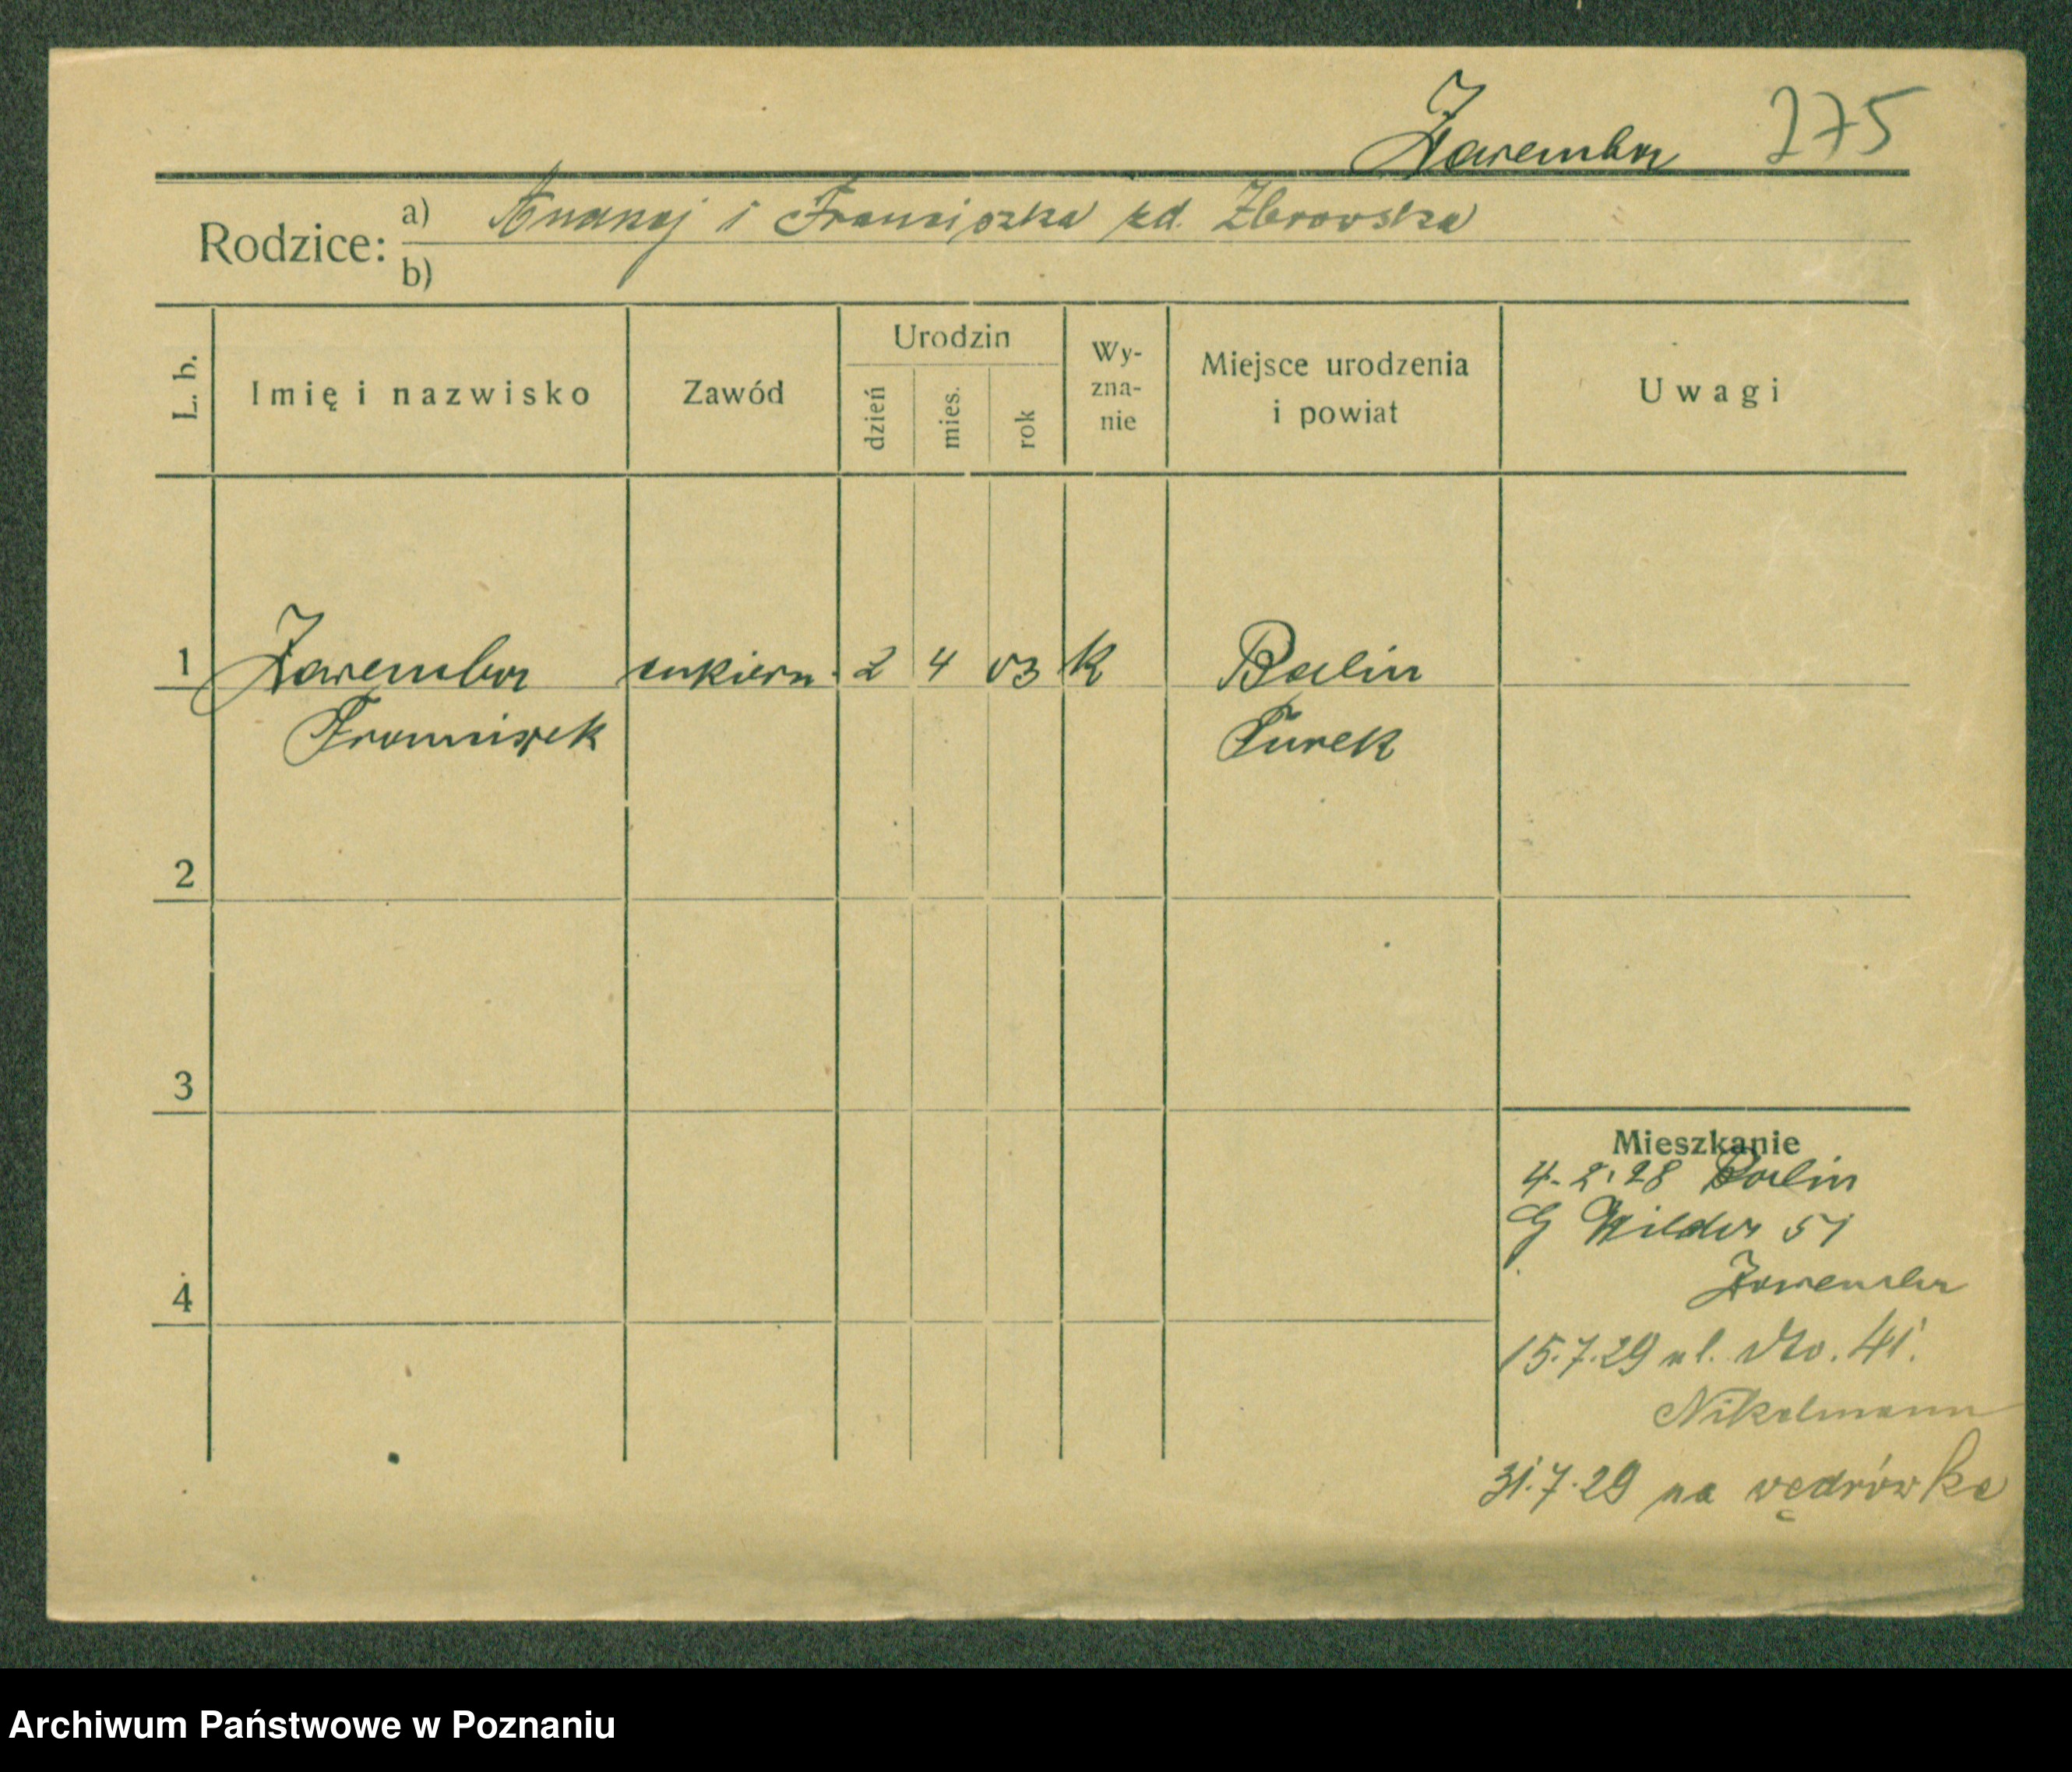 Zaremba 275
Rodzice: a) i Franciszka zd. Zbrowska
b)
L. b. Imię i nazwisko Zawód Urodzin dzień mies. rok Wy-zna-nie Miejsce urodzenia i powiat Uwagi
1 Zaremba cukiern. 2 4 03 K Balin
Franciszek Turek
2
3
Mieszkanie
4. 2. 28 Balin
G Wilda 51
4 Zaremba
15.7.29 ul. 41.
Nikelmann
31.7.29 na wędrówkę
Archiwum Państwowe w Poznaniu